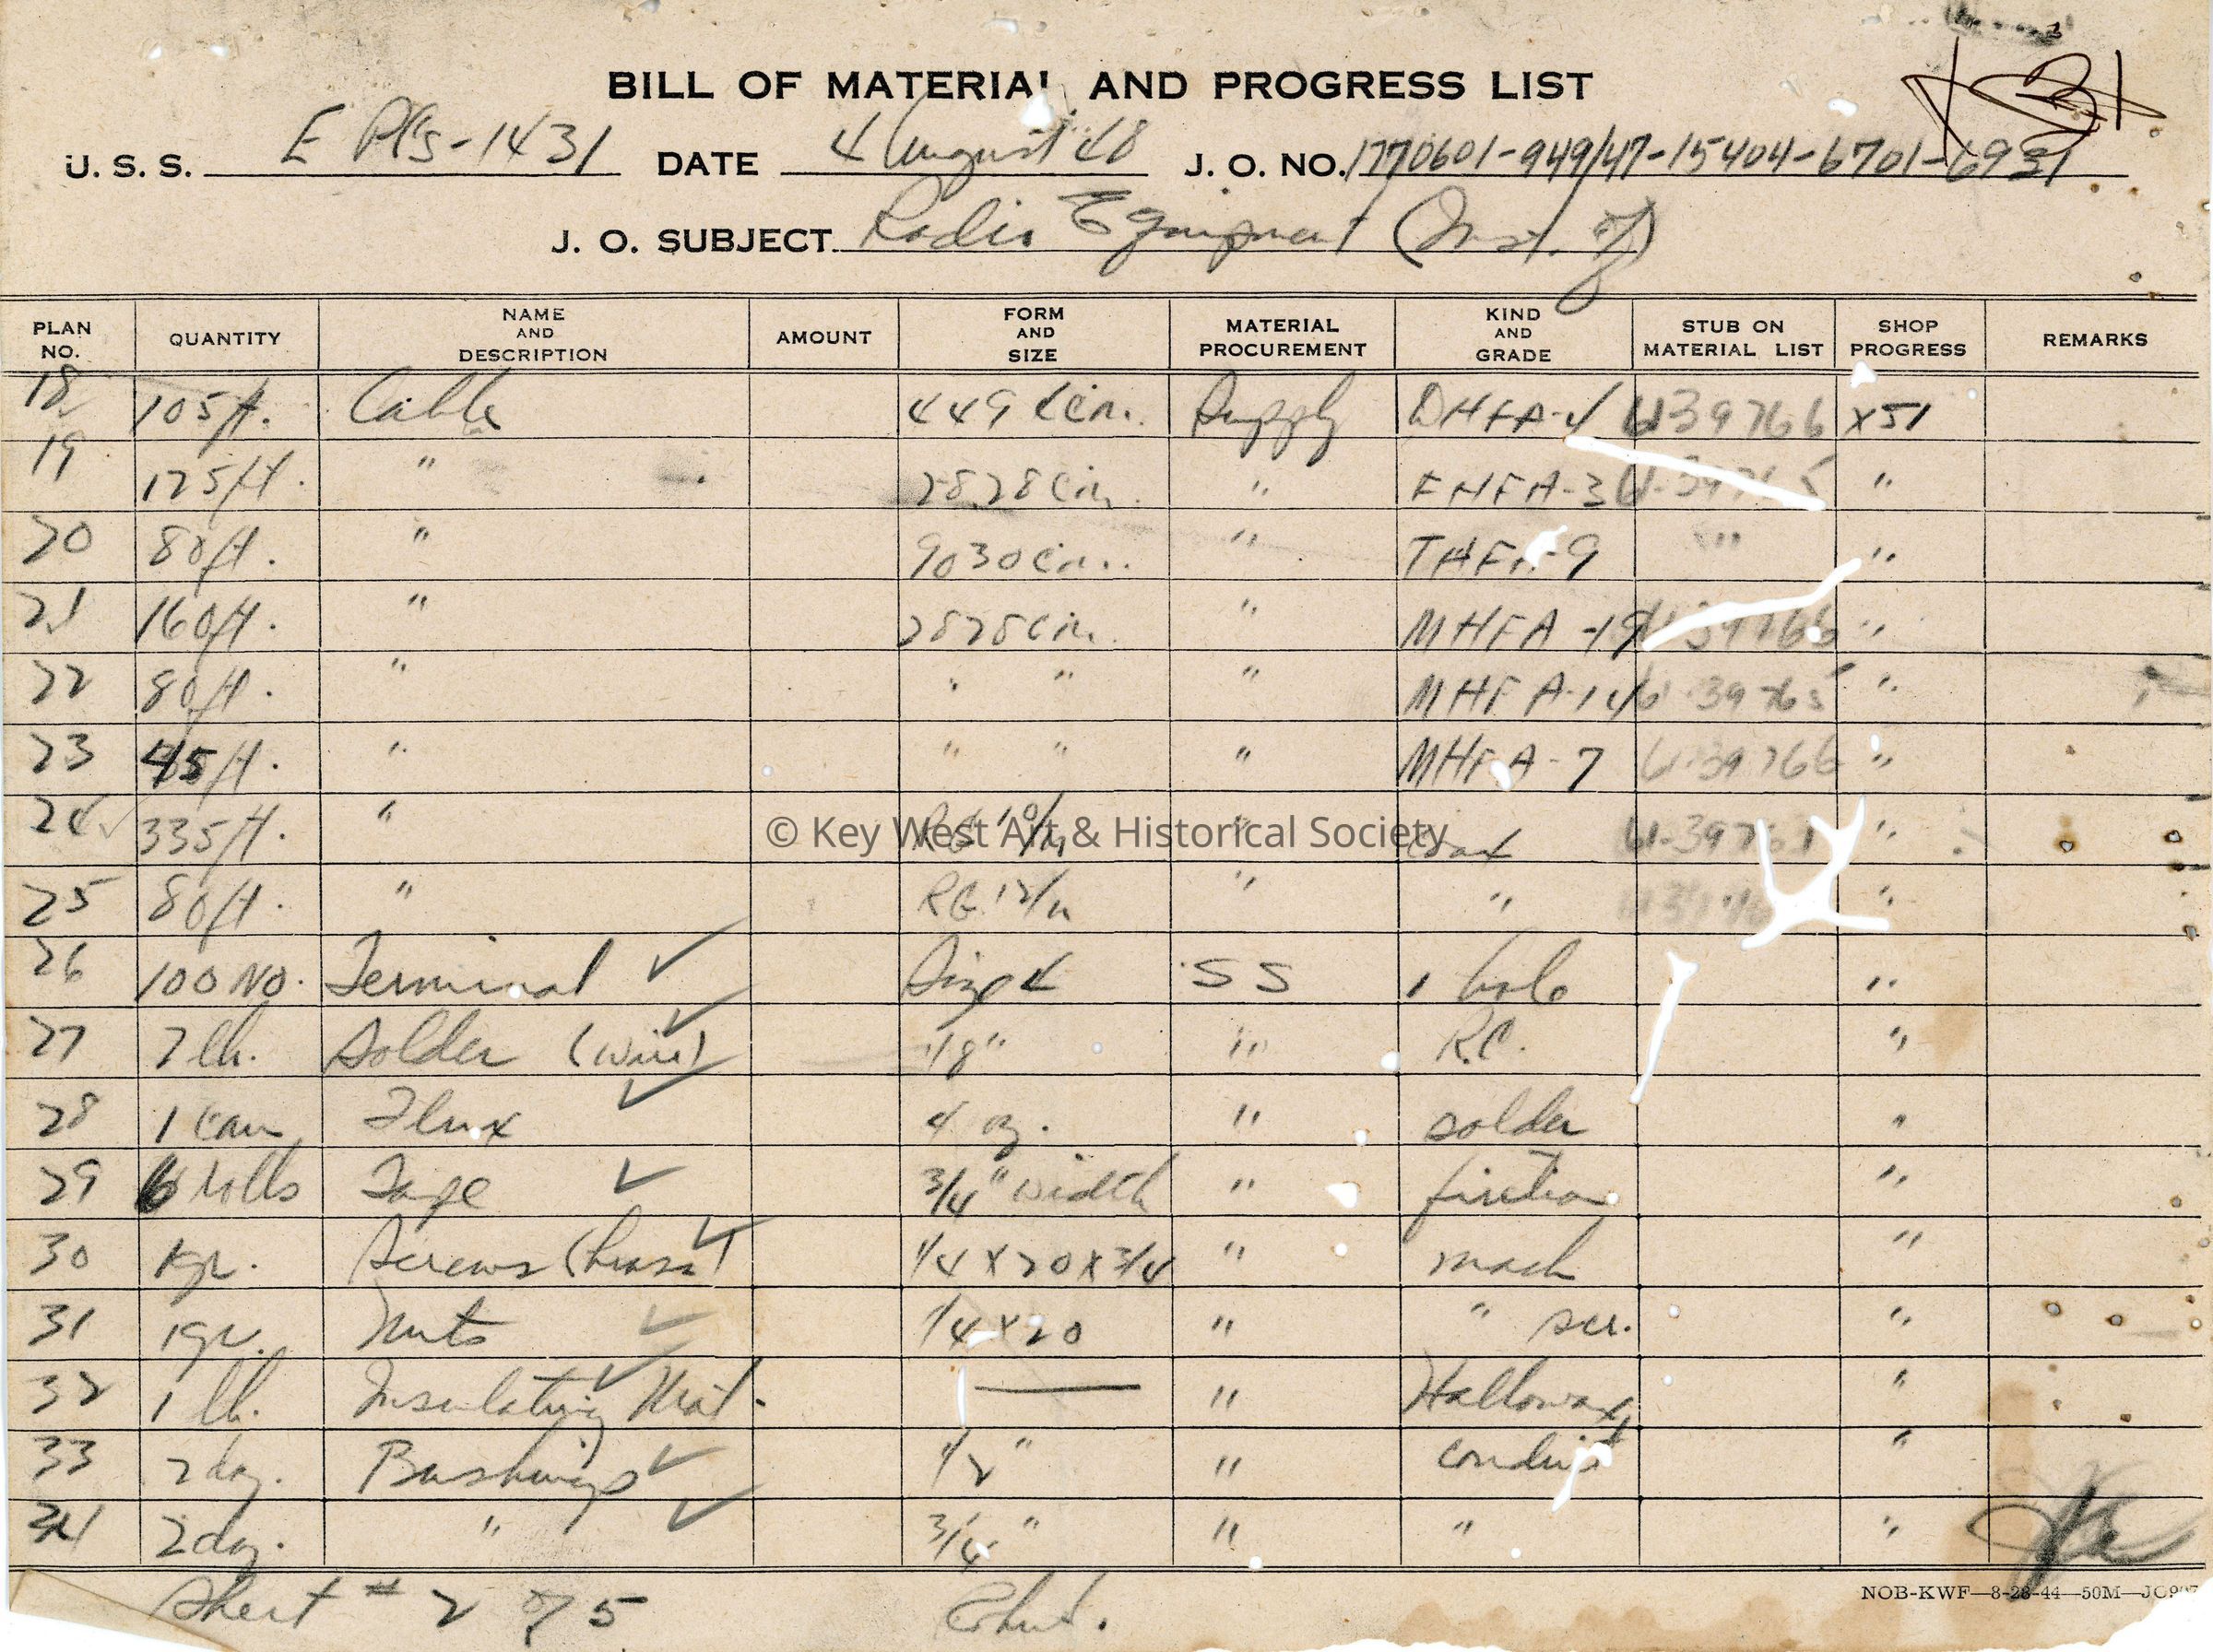 BILL OF MATERIAL AND PROGRESS LIST
U. S. S. E PCS-1431 DATE 4 August 48 J. O. NO. 1770601-949/47-15404-6701-6931
J. O. SUBJECT Radio Equipment (Inst. of)
PLAN NO. QUANTITY NAME AND DESCRIPTION AMOUNT FORM AND SIZE MATERIAL PROCUREMENT KIND AND GRADE STUB ON MATERIAL LIST SHOP PROGRESS REMARKS
18 105 ft. Cable 449 Cir. Supply DHFA-4 U39766 X51
19 125 ft. " 2828 Cir. " FHFA-3 U-39765 "
20 80 ft. " 9030 Cir. " THFA-9 " "
21 160 ft. " 2828 Cir. " MHFA-19 U-39766 "
22 80 ft. " " " " MHFA-14 U-39765 "
23 45 ft. " " " " MHFA-7 U-39766 "
24 335 ft. " RG 10/U " Coax U-39761 "
© Key West Art & Historical Society
25 80 ft. " RG 12/U " " "
26 100 NO. Terminal ✓ Size 4 SS 1 hole "
27 7 lb. Solder (wire) ✓ 1/8" " R.C. "
28 1 can Flux ✓ 4 oz. " solder "
29 6 rolls Tape ✓ 3/4" width " friction "
30 1 gr. Screws (brass) ✓ 1/4 X 20 X 3/4 " mach "
31 1 gr. Nuts ✓ 1/4 X 20 " " scr. "
32 1 lb. Insulating Mat. ✓ — " Hallowax "
33 2 doz. Bushings ✓ 1/2" " conduit "
34 2 doz. " ✓ 3/4" " " "
Sheet # 2 of 5
NOB-KWF—8-28-44—50M—JO907